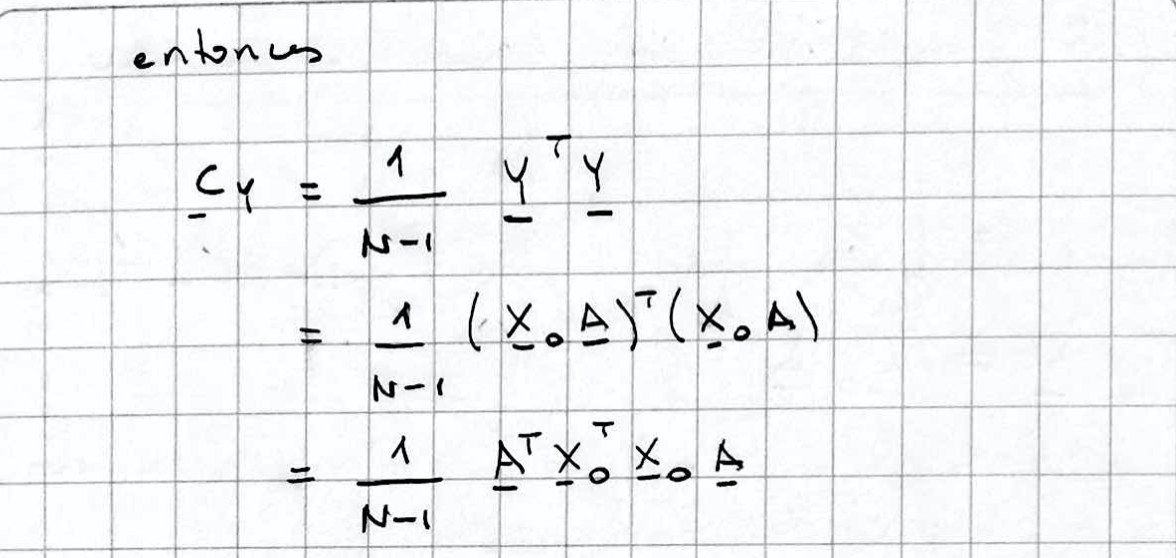 entonces
C_Y = 1/(N-1) Y^T Y
= 1/(N-1) (X_0 A)^T (X_0 A)
= 1/(N-1) A^T X_0^T X_0 A